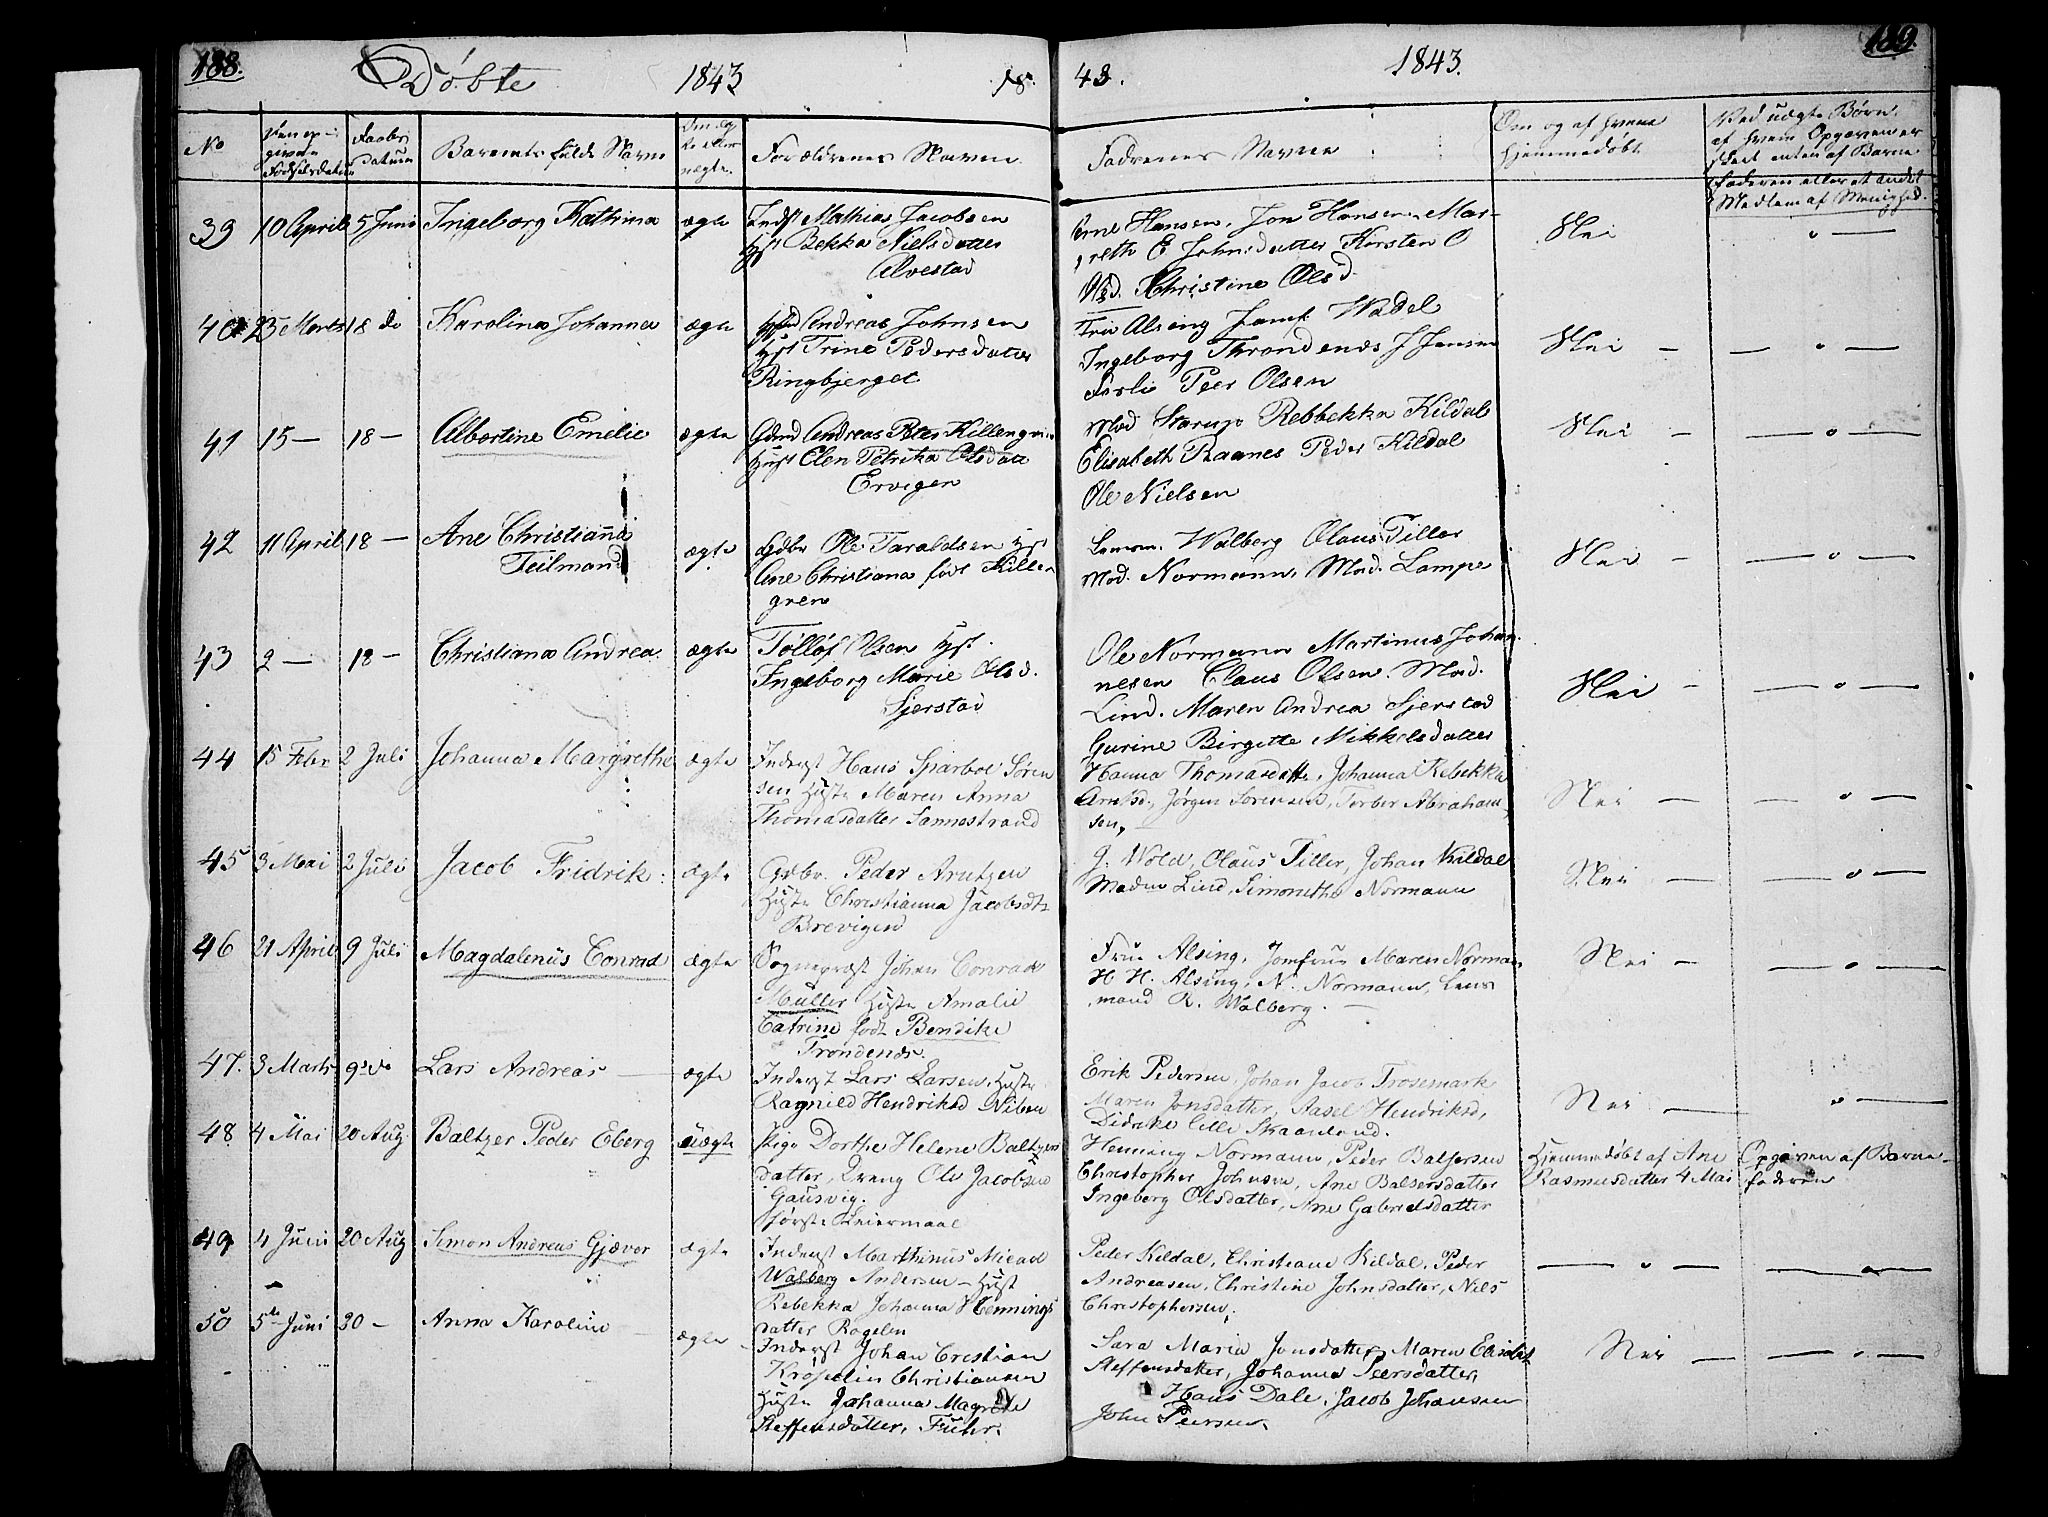 188.
Døbte 1843 18
43. 1843.
189.
No
Den op-
givne
Fødselsdatum
Daabs
Datum
Barnets fulde Navn
Om æg
te eller
uægte.
Forældrenes Navne
Fadrenes Navne
Om og af hvem
hjemmedøbt
Ved uægte Børn
af hvem Opgaven er
skeet enten af Barne
faderen eller et andet
Medlem af Menighed.
39 10 April 5 Juni Ingeborg Kathrina ægte Indst Mathias Jacobsen
Hst Bekka Nielsdatter
Alvestad
Arne Hansen, Jon Hansen Mar-
greth E Johnsdatter Karsten O
Christine Olsd.
Nei
40 23 Marts 18 do Karolina Johanna ægte Andreas Johnsen
Hst Trine Pedersdatter
Ringbjerget
Fru Alsing Jomf Wadel
Ingeborg Throndenæs J Jensen
Peer Olsen
Nei
41 15 — 18 — Albertine Emelie ægte Gdmd Andreas Peter Killengreen
Hust Elen Petrika Olsdatt
Ervigen
Mad Starup Rebbekka Kildal
Elisabeth Raanes Peder Kildal
Ole Nielsen
Nei
42 11 April 18 — Ane Christianna
Feilmand
ægte Gdbr Ole Taraldsen Hst
Ane Christiana født Killen
gren
Lensm. Walberg Olaus Tiller
Mad. Normann, Mad. Lampe
Nei
43 2 — 18 — Christiana Andrea ægte Tølløf Olsen Hst.
Ingeborg Marie Olsd.
Sjerstad
Ole Normann Martinus Johan
nesen Claus Olsen. Mad.
Lind. Maren Andrea Sjerstad
Gurine Birgitte Mikkelsdatter
Nei
44 15 Febr 2 Juli Johanna Margrethe ægte Inderst Hans Sparboe Søren
sen Hustr Maren Anna
Thomasdatter Sannestrand
Hanna Thomasdatt., Johanna Rebekka
Arntsd., Jørgen Sørensen, Torber Abraham
sen,
Nei
45 3 Mai 2 Juli Jacob Fridrik ægte Gdbr. Peder Arntzen
Hustr Christianna Jacobsdtr
Brevigen
J. Wold, Olaus Tiller, Johan Kildal
Madm Lind, Simonethe Normann
Nei
46 21 April 9 Juli Magdalenus Conrad ægte Sognepræst Johan Conrad
Müller Hustr Amalie
Catrine født Bendike
Trondenæs.
Frue Alsing, Jomfrue Maren Norman
H. H. Alsing, N. Normann, Lens
mand R. Walberg.
Nei
47. 3 Marts 9 do Lars Andreas ægte Inderst Lars Larsen, Hustr
Ragnild Hendriksd Nibøen
Erik Pedersen, Johan Jacob Trosemark
Maren Jonsdatter, Aasel Hendriksd,
Didrike Elli Skaanland.
Nei
48. 4 Mai 20 Aug Baltzer Peder Eberg uægte Pige Dorthe Helene Baltzers
datter, Dreng Ole Jacobsen
Gausvig.
første Leiermaal
Henning Normann, Peder Balsersen
Christopher Johnsen, Ane Balsersdatter
Ingeborg Olsdatter, Ane Gabrielsdatter
Hjemmedøbt af Ane
Rasmusdatter 4 Mai
Opgaven af Barne-
faderen
49 4 Juni 20 Aug Simon Andreas Gjæver ægte Inderst Marthinus Micael
Walberg Andersen — Hust
Rebekka Johanna Hennings
datter Rogelen
Peder Kildal, Christiane Kildal, Peder
Andreasen, Christine Johnsdatter, Nils
Christophersen.
50 5te Juni 20 — Anna Karoline ægte Inderst Johan Crestian
Christiansen
Hustr Johanna Magrete
Steffensdatter, Fuhr.
Sara Maria Jonsdatter, Maren Elisabet
Steffensdatter, Johanna Peersdatter,
Hans Dale, Jacob Johansen
John Peersen.
Nei